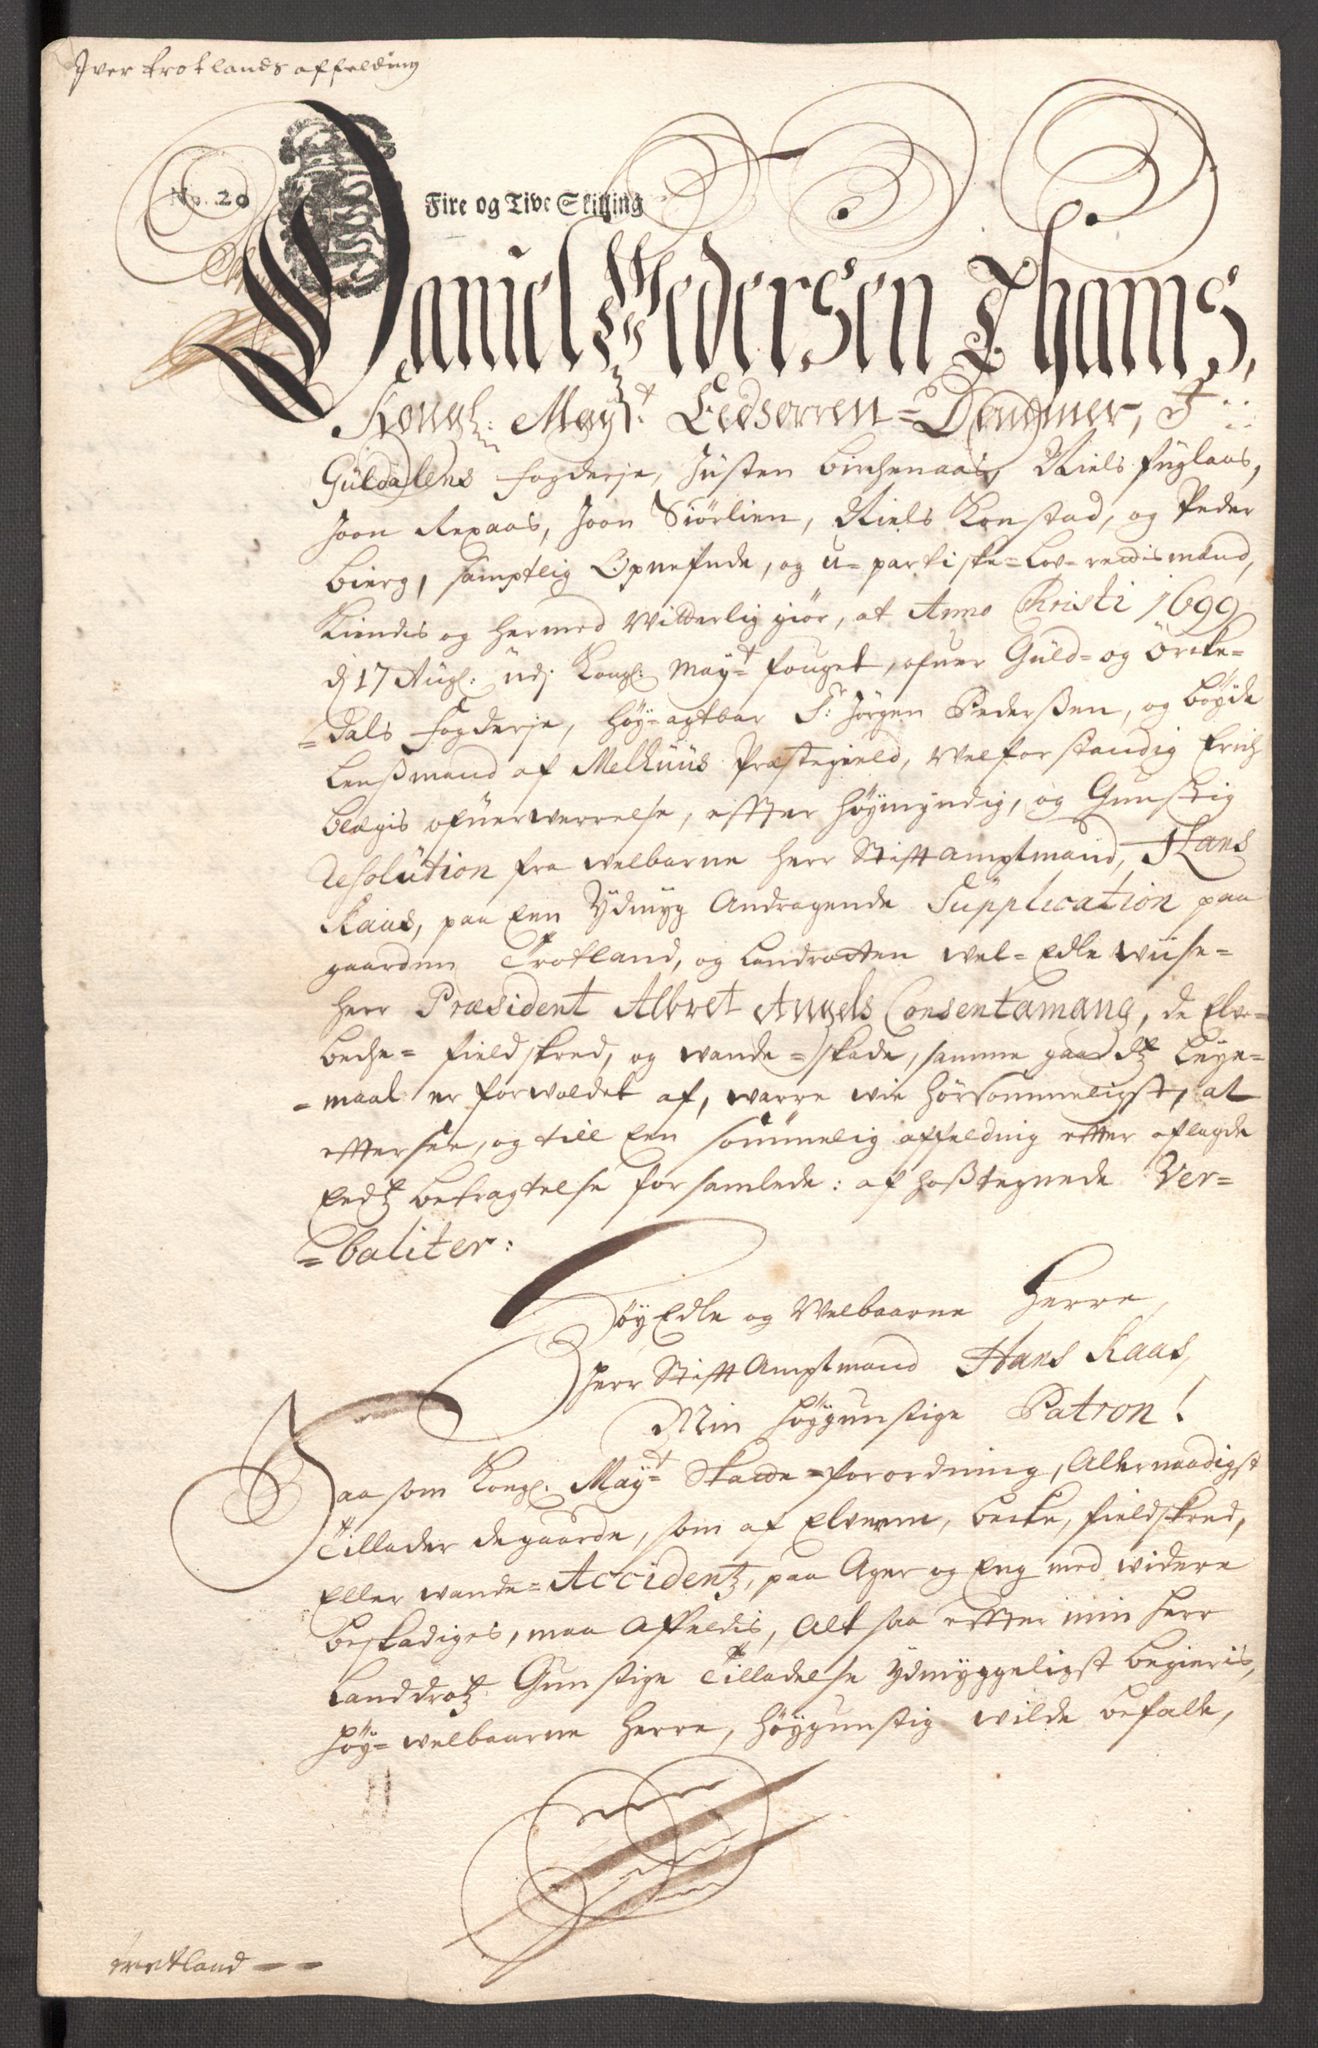 Iver trotlands affelding
No. 20
Fire og Tive Skilling
Daniel Pedersen Thams,
Kongl: Mayt Eedsorren= J
Guldalens fogderje, Justen Birchenaas, Niels fuglaas,
Joon Rexaas, Joon Siørlien, Niels Konstad, og Peder
bierg, samptlig Opnefnde, og u=partiske=Lov=rettismænd,
Kiendis og hermed Vitterlig giør, at Anno Christi 1699
dj 17 Augl: udj Kongl: Mayt fouget, ofuer Guld= og Örcke=
=dals fogderje, höy=agtbar Sr: Jørgen Pederßen, og böyde
Lenßmand af Melhuus Præstegield, Velforstandig Erich
ofuerwerrelse, effter höymyndig, og Gunstig
resolution fra welbarne herr Stifft amptmand, Hans
Kaas, paa Een Ydmyg Andragende Supplication paa
gaarden Trotland, og Landrotten wel=Edle wiise=
herr Præsident Albret Angels Consentamang, de Elve=
beche= fieldskred, og wande=skade, samme gaardtz Leye=
=maal er forvoldet af, warre wie hörsommeligst, at
effterse, og till Een sömmelig affelding effter aflagde
Eedtz betragtelse forsamlede: af hoßtegnede Ver=
=baliter:
HöyEdle og Velbaarne Herre,
Herr Stifft Amptmand Hans Kaas,
Min höygunstige Patron!
Saasom Kongl: Mayt Skatte=forordning, Allernaadigst
Tillader de gaarde, som af Elvenn, becke, fieldskred,
Eller wande=Accidentz, paa Ager og Eng med widere
beskadiges, maa affeldis, Alt saa effter min herr
Landdrotz Gunstige Tilladelse Ydmyggeligst begieris,
höy=welbaarne herre, höygunstig wilde befale,
trotland